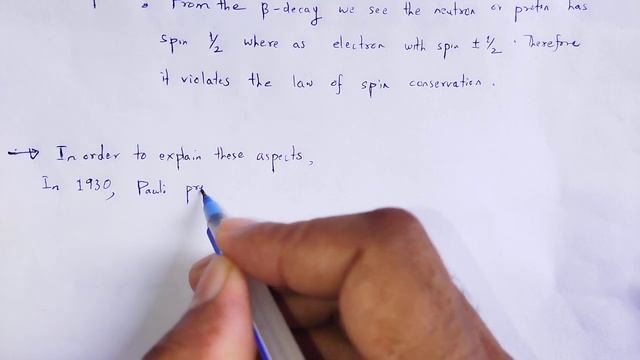 • From the β-decay we see the neutron or protin has
spin 1/2 where as electron with spin ± 1/2. Therefore
it violates the law of spin conservation.
→ In order to explain these aspects,
In 1930, Pauli pro